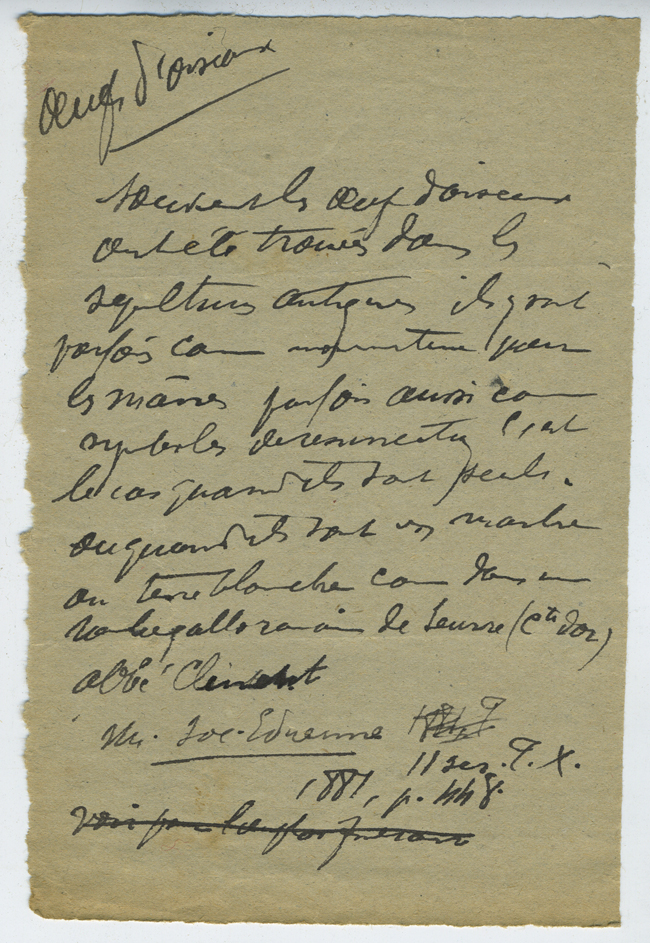 Œufs d'oiseaux
Souvent les œufs d'oiseaux
ont été trouvés dans les
sépultures antiques ils y sont
parfois com nourriture pour
les mânes parfois aussi com
symboles de résurrection c'est
le cas quand ils sont seuls.
ou quand ils sont en marbre
ou terre blanche com dans un
tombe gallo romain de Seurre (Cte d'or)
abbé Clément
m. Soc. Eduenne
II ser. T. X.
1881, p. 448.